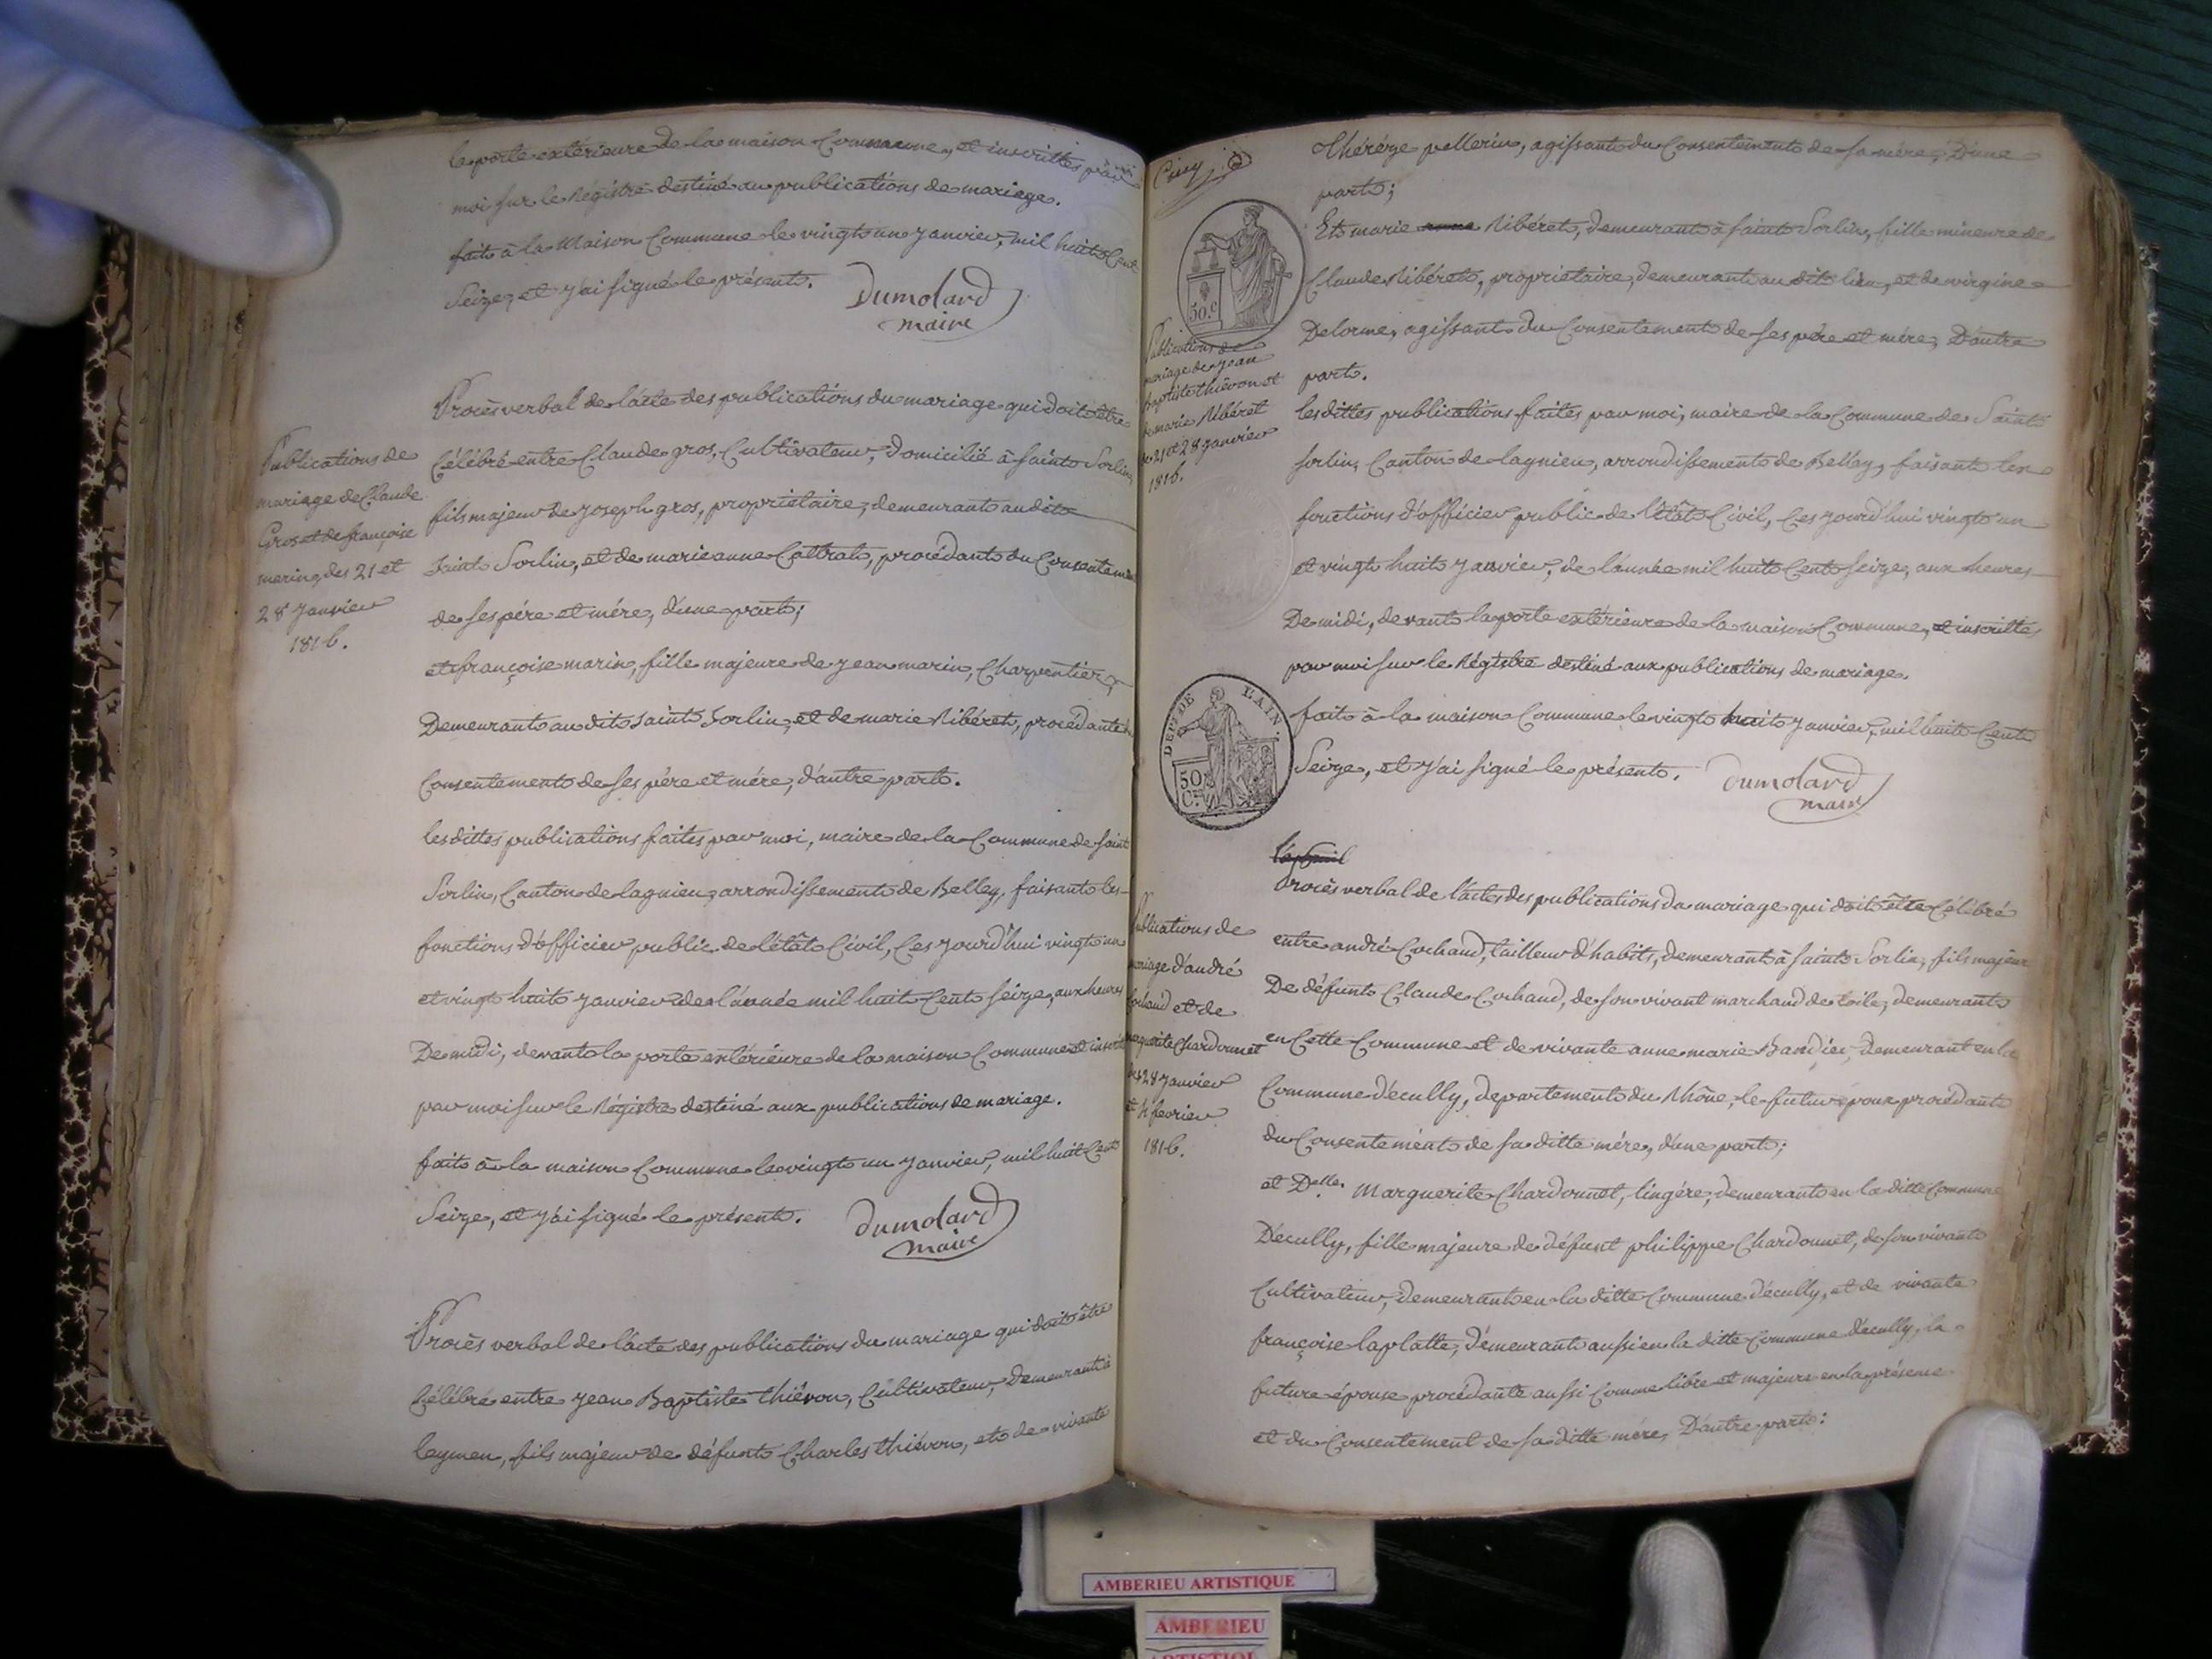 la porte extérieure de la maison Commune, et inscrittes par
moi sur le Régistre destiné au publications de mariage.
fait à la Maison Commune le vingt un janvier, mil huit Cent
Seize, et j'ai signé le présent.
Dumolard
maire
Publications de
mariage de Claude
Gros et de françoise
marin, des 21 et
28 janvier
1816.
Procès verbal de l'acte des publications du mariage qui doit être
Célébré entre Claude gros, Cultivateur, domicilié à saint Sorlin,
fils majeur de joseph gros, propriétaire, demeurant au dit
Saint Sorlin, et de marie anne Cottrat, procédant du Consentement
de ses père et mère, d'une part;
et françoise marin, fille majeure de jean marin, Charpentier,
Demeurant au dit Saint Sorlin, et de marie Ribéret, procédante du
Consentement de ses père et mère, d'autre part.
les dittes publications faites par moi, maire de la Commune de saint
Sorlin, Canton de lagnieu, arrondissement de Belley, faisant les
fonctions d'officier public de l'état Civil, Ces jourd'hui vingt un
et vingt huit janvier de l'année mil huit Cent seize, aux heures
De midi, devant la porte extérieure de la maison Commune et
par moi sur le Régistre destiné aux publications de mariage.
fait à la maison Commune le vingt un janvier, mil huit Cent
Seize, et j'ai signé le présent.
Dumolard
maire
Procès verbal de l'acte des publications du mariage qui doit être
Célébré entre jean Baptiste thiévon, Cultivateur, Demeurant à
leyment, fils majeur de défunt Charles thiévon, et de vivante
Cinq
50.c
Publications de
mariage de jean
Baptiste thiévon et
de marie Ribéret
des 21 et 28 janvier
1816.
thérèze pellerin, agissant du Consentement de sa mère, D'une
part;
Et marie Ribéret, demeurant à saint Sorlin, fille mineure de
Claude Ribéret, propriétaire, demeurant au dit lieu, et de virginie
Delorme, agissant du Consentement de ses père et mère, D'autre
part.
les dittes publications faites par moi, maire de la Commune de Saint
sorlin, Canton de lagnieu, arrondissement de Belley, faisant les
fonctions d'officier public de l'état Civil, Ces jourd'hui vingt un
et vingt huit janvier, de l'année mil huit Cent seize, aux heures
De midi, devant la porte extérieure de la maison Commune, et inscrittes
par moi sur le Régistre destiné aux publications de mariage.
fait à la maison Commune le vingt huit janvier, mil huit Cent
Seize, et j'ai signé le présent.
Dumolard
maire
DEPT DE L'AIN.
50
C.
Publications de
mariage d'andré
Cochaud et de
marguerite Chardonnet
des 28 janvier
et 4 fevrier
1816.
Procès verbal de l'acte des publications du mariage qui doit être Célébré
entre andré Cochaud, tailleur d'habits, demeurant à saint Sorlin, fils majeur
De défunt Claude Cochaud, de son vivant marchand de toile, demeurant
en Cette Commune et de vivante anne marie demeurant en la
Commune d'écully, departement du Rhône, le futur époux procédant
du Consentement de sa ditte mère, d'une part;
et Delle. Marguerite Chardonnet, lingère, demeurant en la ditte Commune
D'écully, fille majeure de défunt philippe Chardonnet, de son vivant
Cultivateur, demeurant en la ditte Commune d'écully, et de vivante
françoise laplatte, demeurant aussi en la ditte Commune d'écully, la
future épouse procédante aussi Comme libre et majeure en la présence
et du Consentement de sa ditte mère, D'autre part:
AMBERIEU ARTISTIQUE
AMBERIEU
ARTISTIQUE